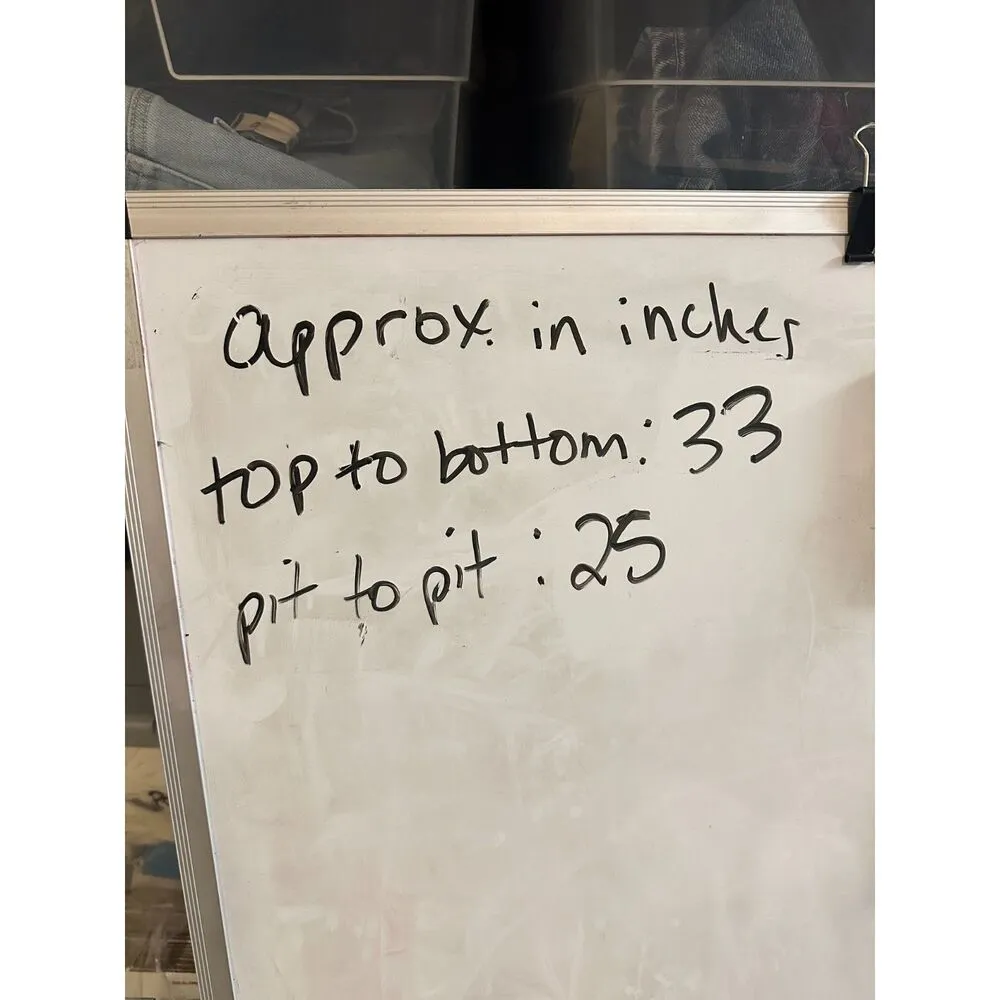 approx. in inches
top to bottom: 33
pit to pit: 25